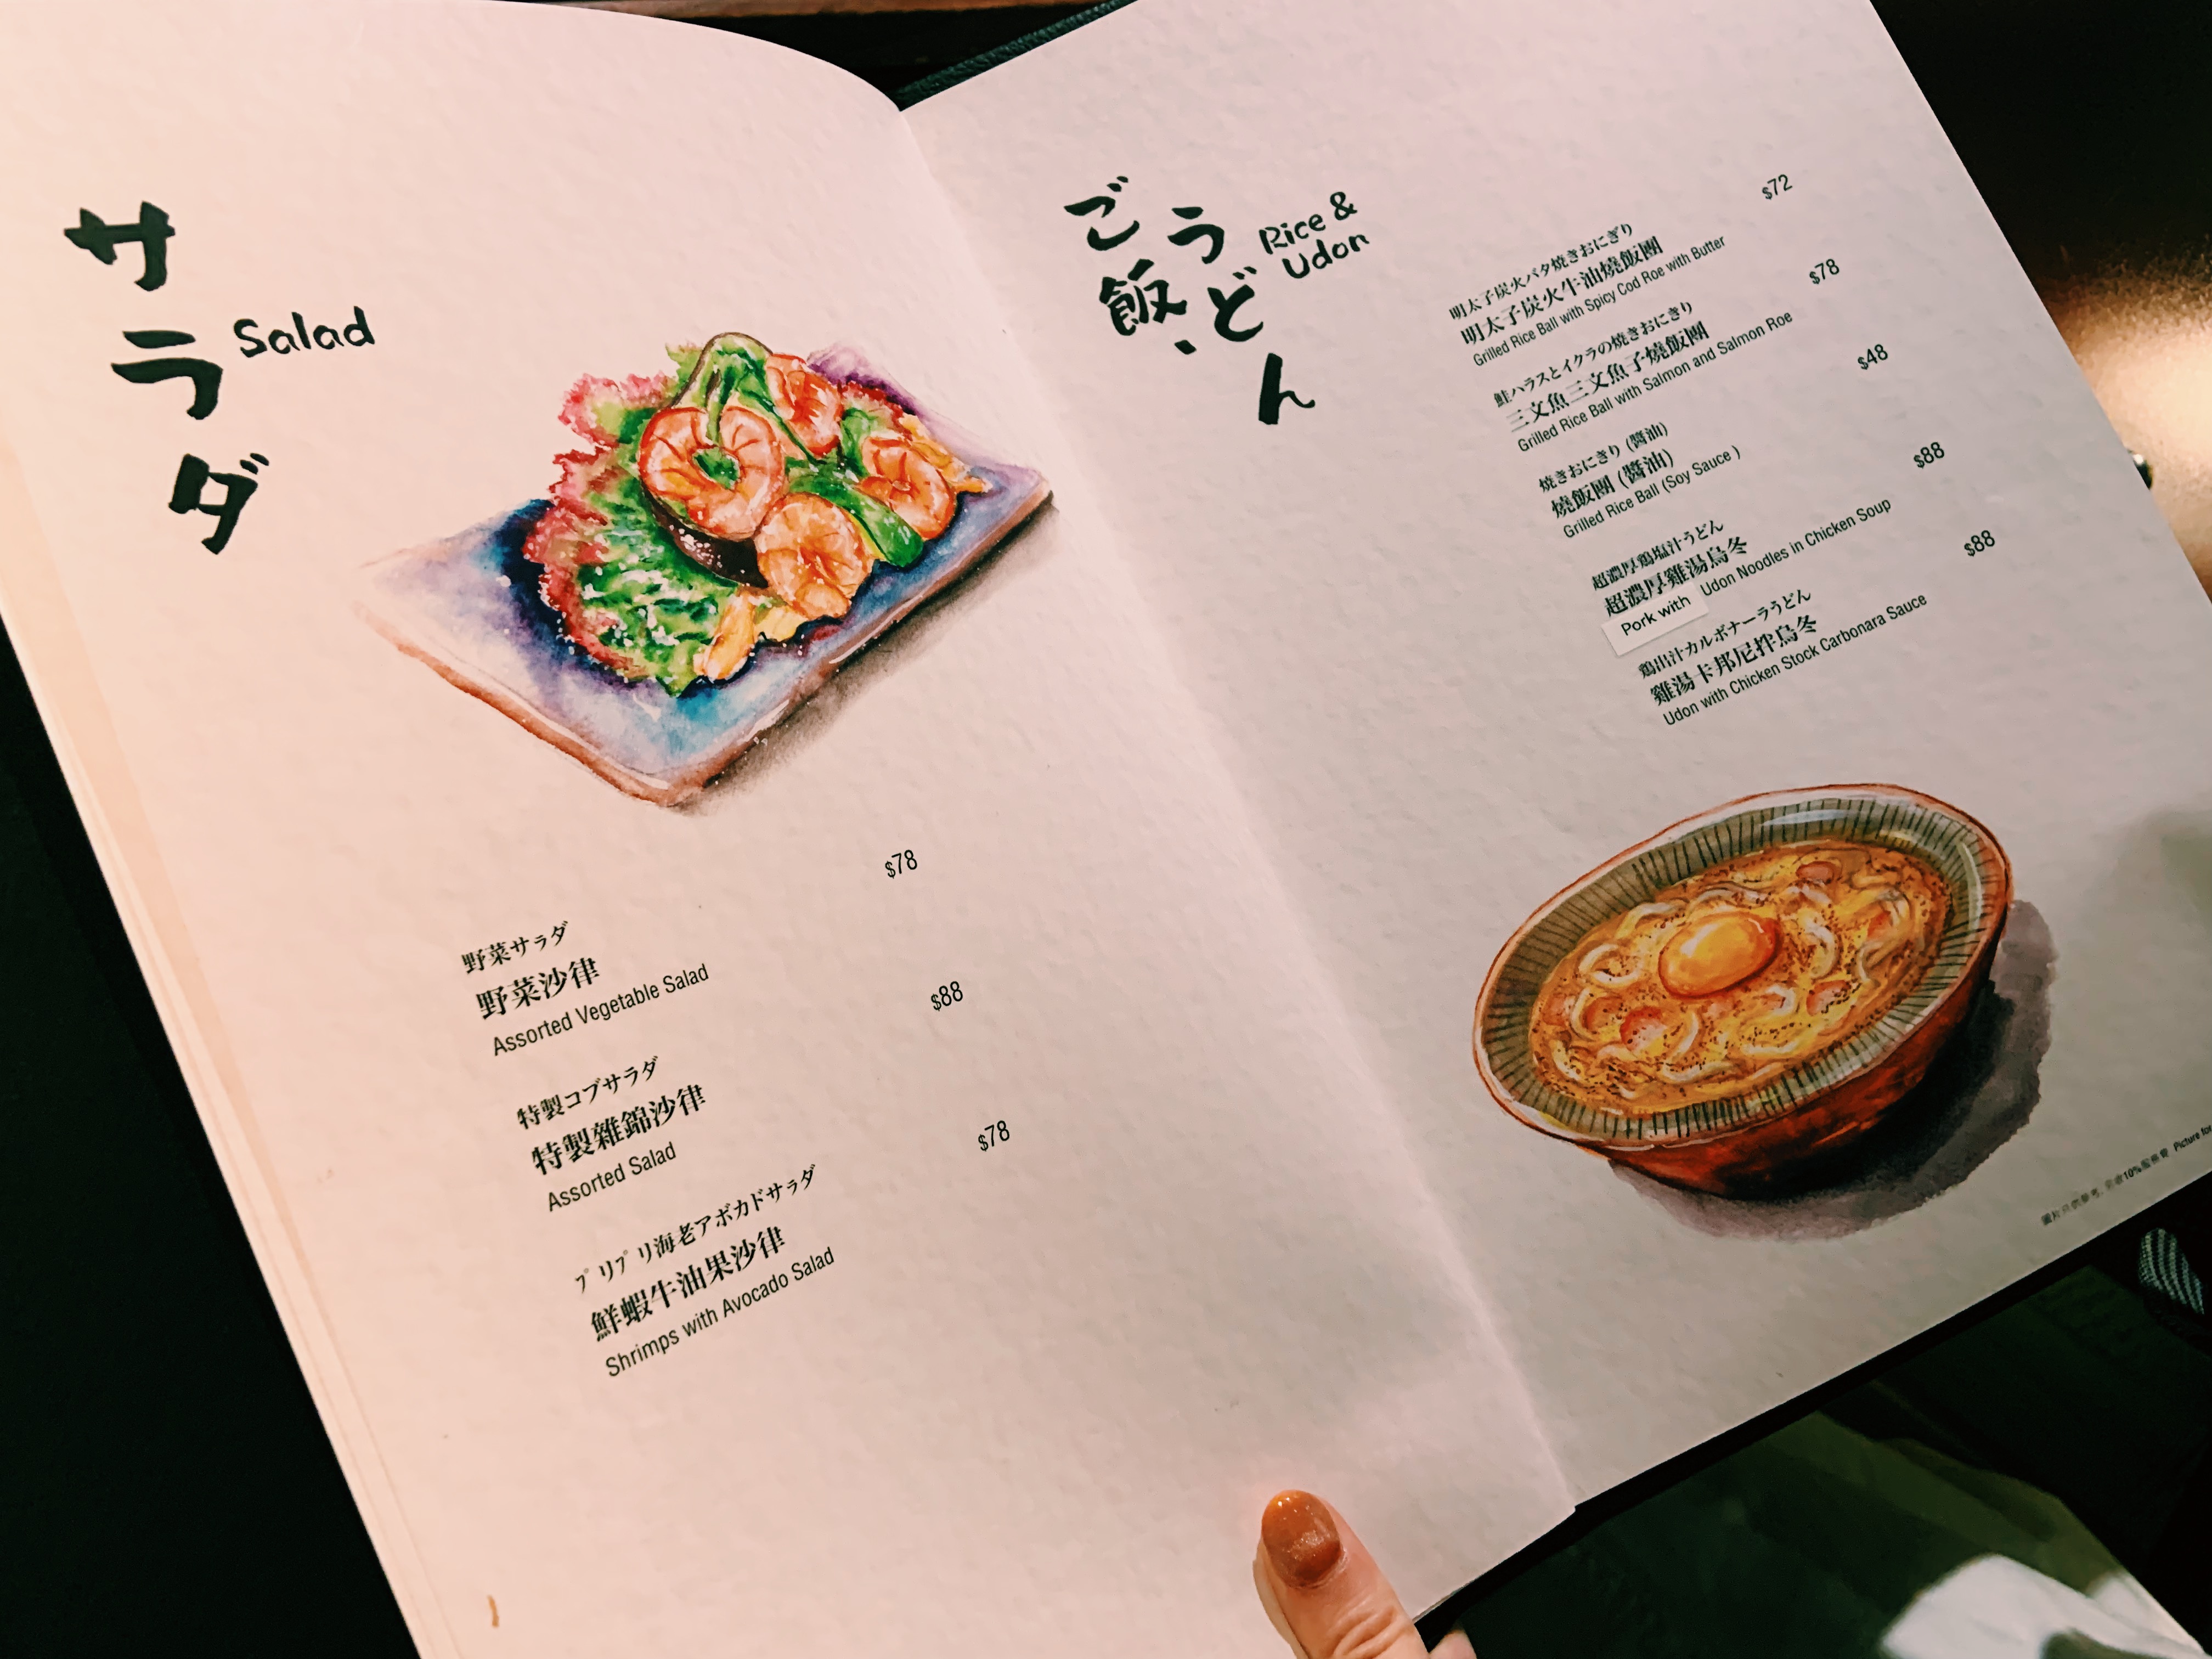 サラダ
Salad
$78
野菜サラダ
野菜沙律
Assorted Vegetable Salad
$88
特製コブサラダ
特製雜錦沙律
Assorted Salad
$78
プリプリ海老アボカドサラダ
鮮蝦牛油果沙律
Shrimps with Avocado Salad
ご飯、
うどん
Rice &
Udon
$72
明太子炭火バタ焼きおにぎり
明太子炭火牛油燒飯團
Grilled Rice Ball with Spicy Cod Roe with Butter
$78
鮭ハラスとイクラの焼きおにきり
三文魚三文魚子燒飯團
Grilled Rice Ball with Salmon and Salmon Roe
$48
焼きおにきり (醬油)
燒飯團 (醬油)
Grilled Rice Ball (Soy Sauce )
$88
超濃厚鶏塩汁うどん
超濃厚雞湯烏冬
Pork with Udon Noodles in Chicken Soup
$88
鶏出汁カルボナーラうどん
雞湯卡邦尼拌烏冬
Udon with Chicken Stock Carbonara Sauce
圖片只供參考, 另收10%服務費 Picture for